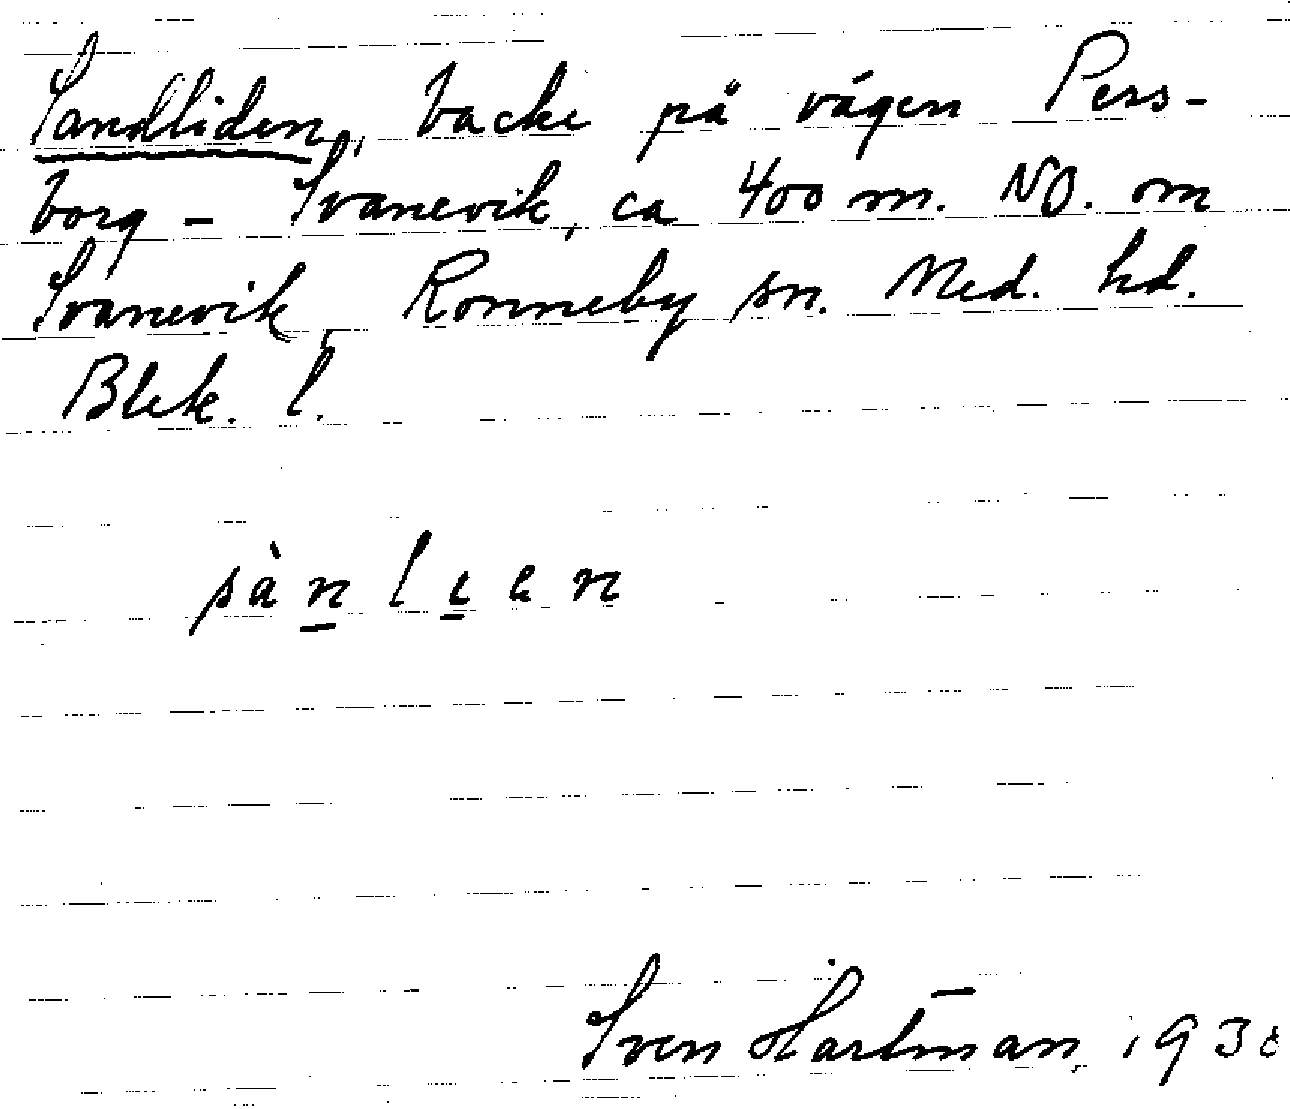 Sandliden, backe på vägen Pers-
borg - Svanevik, ca 400 m. NO. om
Svanevik, Ronneby sn. Med. hd.
Blek. l.
sànlıen
Sven Hartman